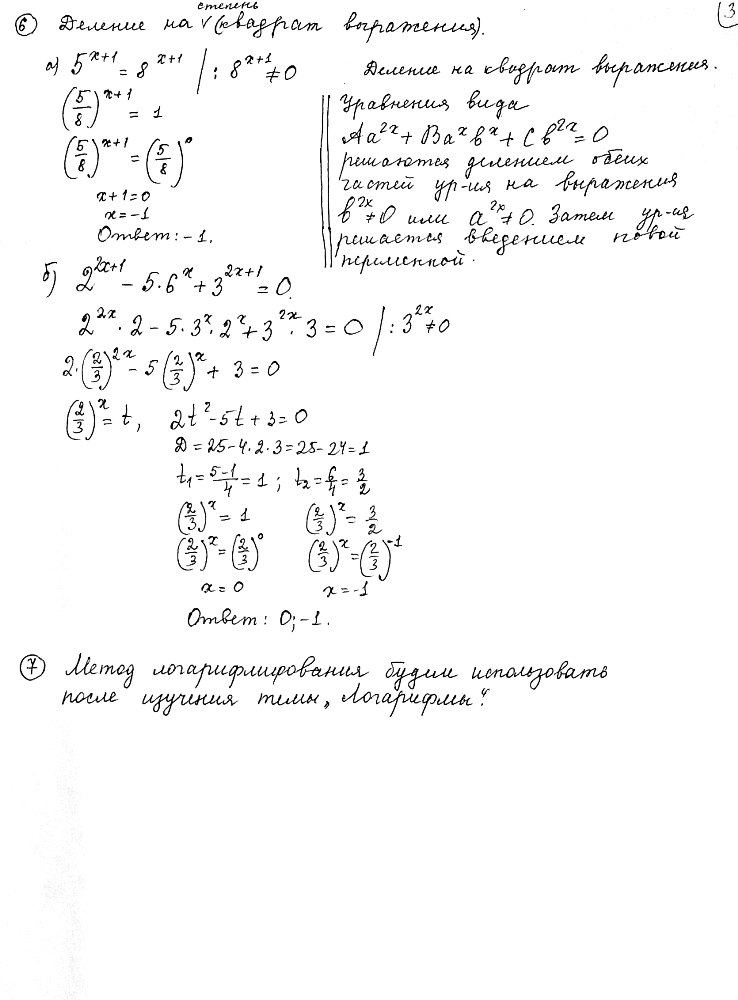 3
степень
⑥ Деление на ∨ (квадрат выражения).
а) 5^{x+1} = 8^{x+1} | : 8^{x+1} ≠ 0
(5/8)^{x+1} = 1
(5/8)^{x+1} = (5/8)^0
x+1=0
x=-1
Ответ: -1.
Деление на квадрат выражения.
Уравнения вида
Aa^{2x} + Ba^x b^x + Cb^{2x} = 0
решаются делением обеих
частей ур-ия на выражения
b^{2x} ≠ 0 или a^{2x} ≠ 0. Затем ур-ия
решается введением новой
переменной.
б) 2^{2x+1} - 5·6^x + 3^{2x+1} = 0.
2^{2x}·2 - 5·3^x·2^x + 3^{2x}·3 = 0 | : 3^{2x} ≠ 0
2·(2/3)^{2x} - 5(2/3)^x + 3 = 0
(2/3)^x = t, 2t² - 5t + 3 = 0
D = 25-4·2·3 = 25-24 = 1
t₁ = (5-1)/4 = 1 ; t₂ = 6/4 = 3/2
(2/3)^x = 1 (2/3)^x = 3/2
(2/3)^x = (2/3)^0 (2/3)^x = (2/3)^{-1}
x = 0 x = -1
Ответ: 0; -1.
⑦ Метод логарифмирования будем использовать
после изучения темы „Логарифмы“.